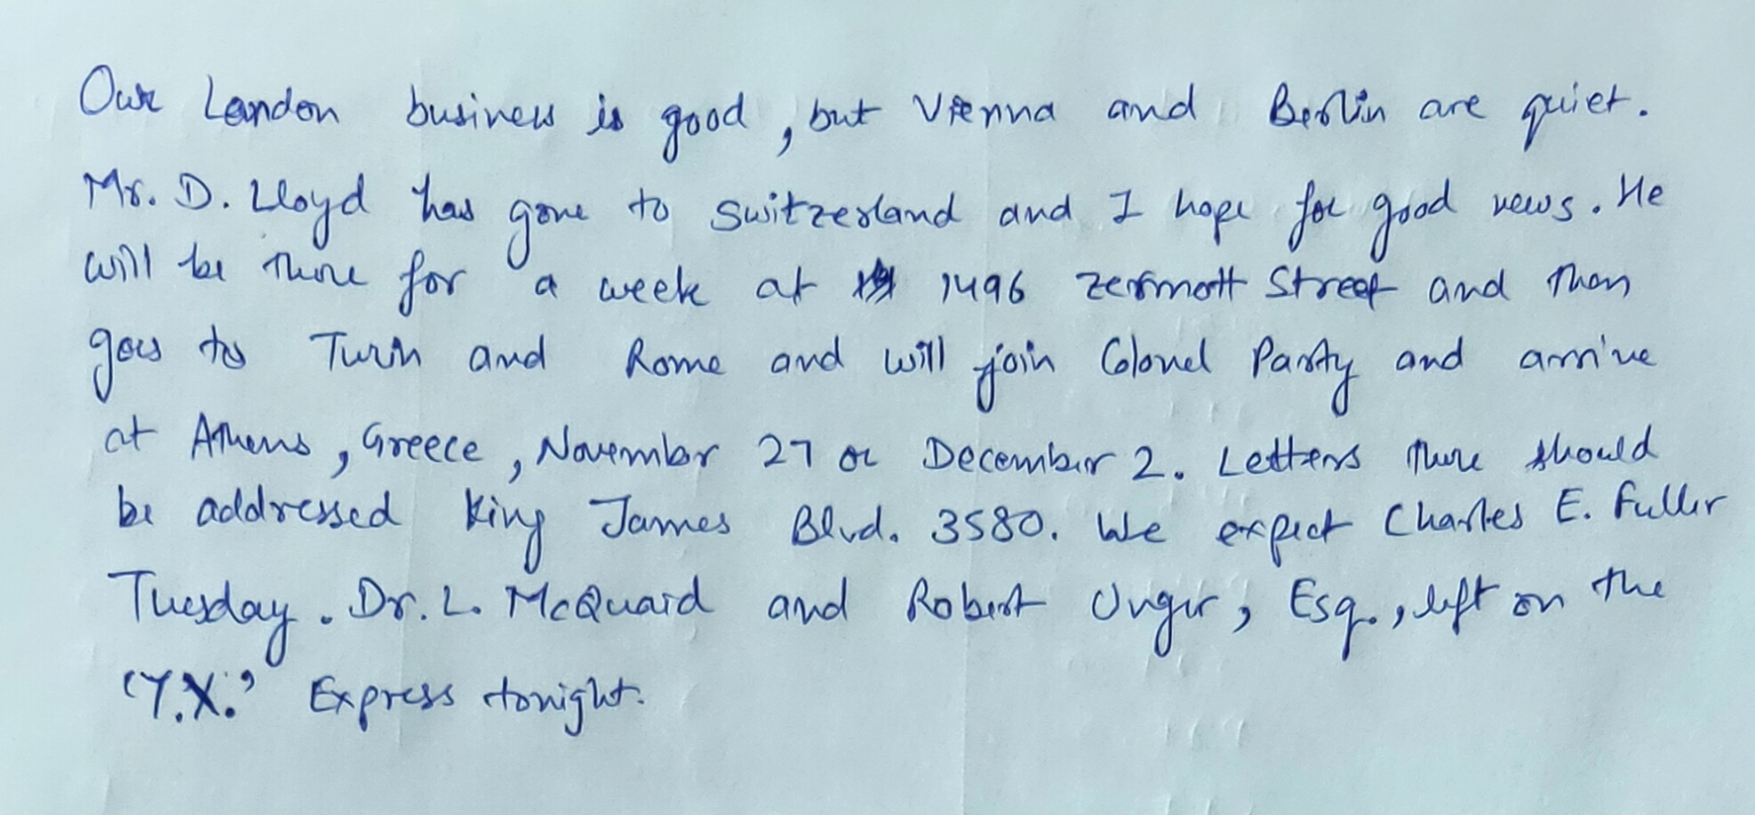 Our London business is good, but Vienna and Berlin are quiet.
Mr. D. Lloyd has gone to Switzerland and I hope for good news. He
will be there for a week at 1496 Zermott Street and then
goes to Turin and Rome and will join Colonel Party and arrive
at Athens, Greece, November 27 or December 2. Letters there should
be addressed King James Blvd. 3580. We expect Charles E. Fuller
Tuesday. Dr. L. McQuaid and Robert Unger, Esq., left on the
'Y.X.' Express tonight.